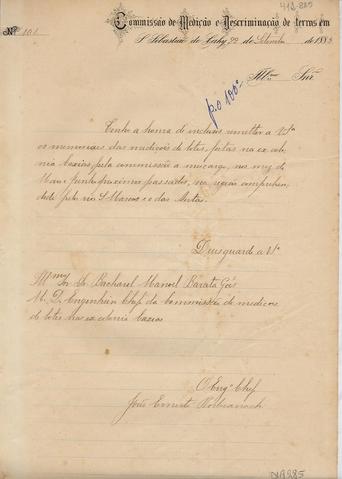 418-885
Commissão de Medição e Descriminação de terras em
Nº 101
S. Sebastião do Cahy, 22 de Setembro de 1885
p.o 100º
Illmo Snr.
Tenho a honra de incluso remetter a V.Sª
os memoriaes das medições de lotes, feitas na ex colo
nia Caxias, pela commissão a meu cargo, nos mezes de
Maio e Junho proximos passados, na região comprehen
dida pelo rio S. Marcos e o das Antas.
Deus guarde a V.Sª
Snr. Dr. Bacharel Manoel Barata Góes
M. D. Engenheiro Chefe da Commissão de medições
de lotes na ex colonia Caxias
O Engº Chefe
José Ernesto